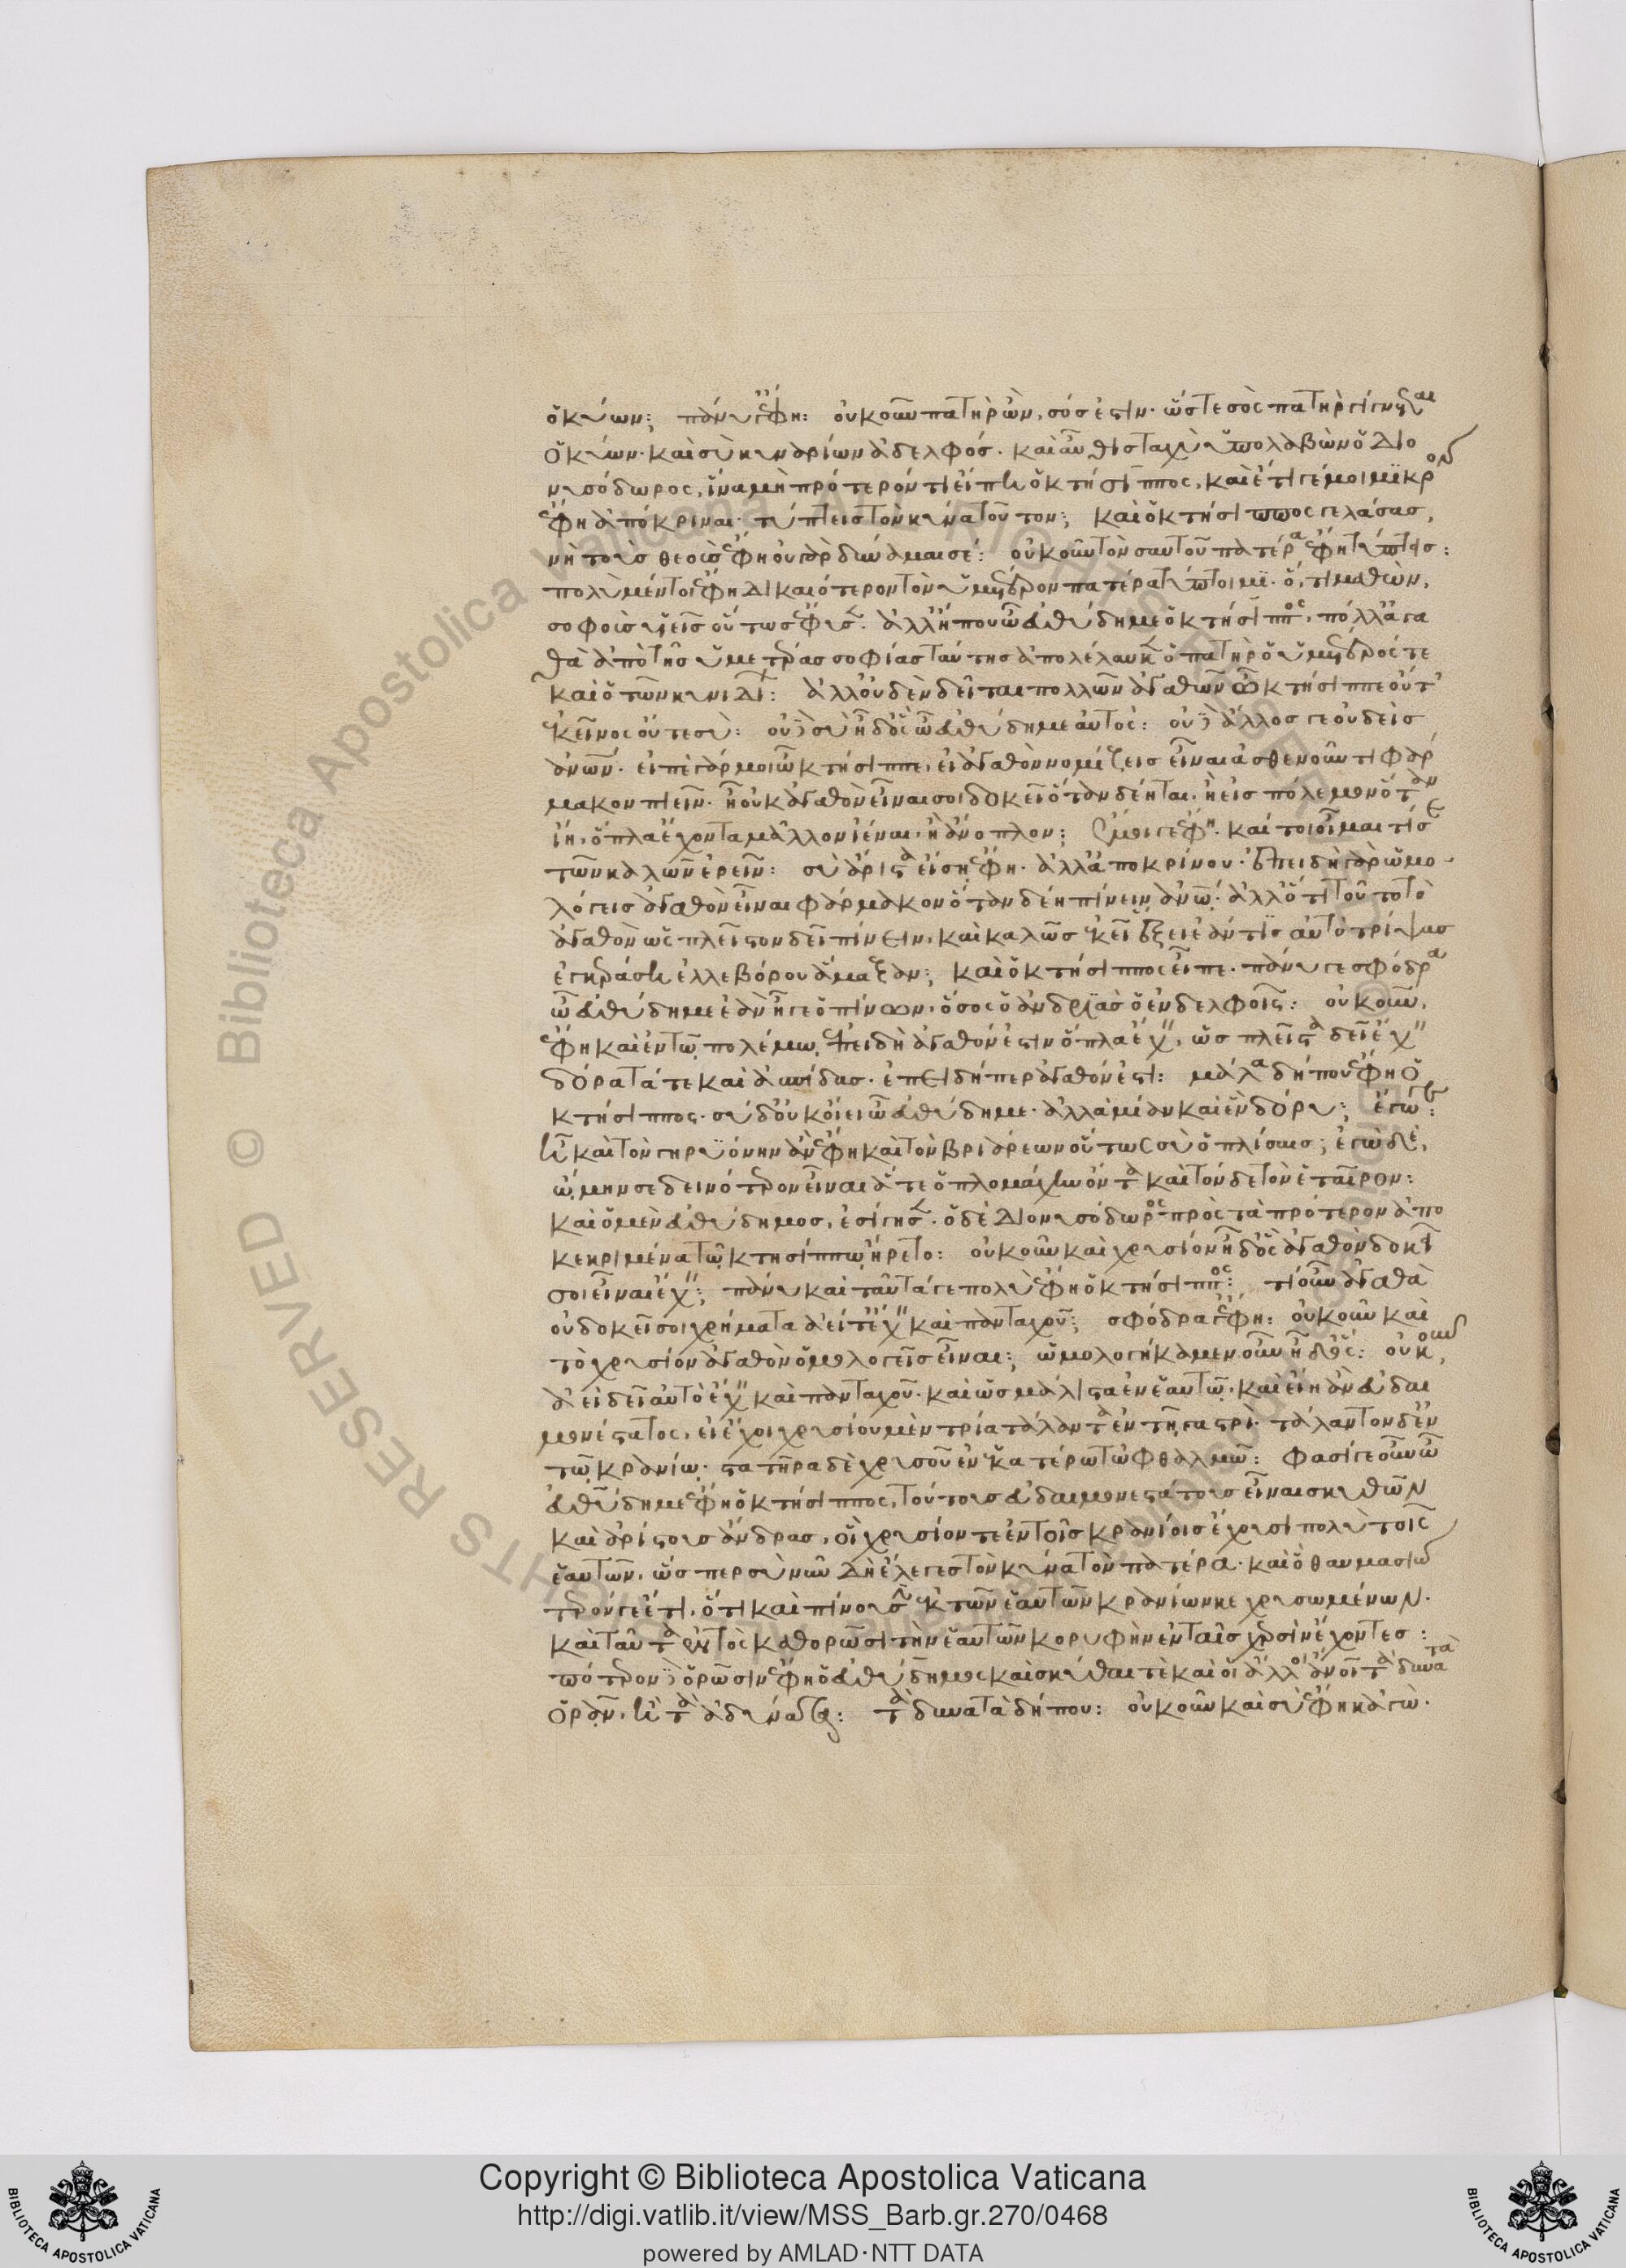 ὁ κύων; πάνυ γ' ἔφη: οὐκοῦν πατὴρ ὢν, σός ἐστιν. ὥστε σὸς πατὴρ γίγνεται
ὁ κύων. καὶ σὺ κυναρίων ἀδελφός. καὶ αὖθις ταχὺ ὑπολαβὼν ὁ Διο
νυσόδωρος, ἵνα μὴ πρότερόν τι εἴπῃ ὁ κτήσιππος, καὶ ἔτι γέ μοι μικρὸν
ἔφη ἀπόκριναι. τύπτεις τὸν κύνα τοῦτον; καὶ ὁ κτήσιππος γελάσας,
νὴ τοὺς θεοὺς ἔφη οὐ γὰρ δύναμαι σέ: οὐκοῦν τὸν σαυτοῦ πατέρα ἔφη τύπτεις:
πολὺ μέντοι ἔφη δικαιότερον τὸν ὑμέτερον πατέρα τύπτοιμι. ὅ, τι μαθὼν,
σοφοὺς υἱεῖς οὕτως ἔφυσεν. ἀλλ' ἤ που ὦ εὐθύδημε ὁ κτήσιππος, πόλλ' ἀγα
θὰ ἀπὸ τῆς ὑμετέρας σοφίας ταύτης ἀπολέλαυκεν ὁ πατὴρ ὁ ὑμέτερός τε
καὶ ὁ τῶν κυνιδίων: ἀλλ' οὐδὲν δεῖται πολλῶν ἀγαθῶν ὦ κτήσιππε οὔτ'
ἐκεῖνος οὔτε σύ: οὐδὲ σὺ ἦ δ' ὃς ὦ εὐθύδημε αὐτός: οὐδὲ ἄλλος γε οὐδεὶς
ἀνθρώπων. εἰπὲ γάρ μοι ὦ κτήσιππε, εἰ ἀγαθὸν νομίζεις εἶναι ἀσθενοῦντι φάρ
μακον πιεῖν. ἢ οὐκ ἀγαθὸν εἶναί σοι δοκεῖ ὅταν δέηται. ἢ εἰς πόλεμον ὅταν
ἴῃ, ὅπλα ἔχοντα μᾶλλον ἰέναι, ἢ ἄνοπλον; ἔμοιγε ἔφη. καίτοι οἶμαί τί σε
τῶν καλῶν ἐρεῖν: σὺ ἄριστα εἴσῃ ἔφη. ἀλλ' ἀποκρίνου. ἐπειδὴ γὰρ ὡμο
λόγεις ἀγαθὸν εἶναι φάρμακον ὅταν δέῃ πίνειν ἀνθρώπῳ. ἄλλό τι τοῦτο τὸ
ἀγαθὸν ὡς πλεῖστον δεῖ πίνειν, καὶ καλῶς ἐκεῖ ἕξει ἐάν τις αὐτῷ τρίψας
ἐγκεράσῃ ἐλλεβόρου ἅμαξαν; καὶ ὁ κτήσιππος εἶπε. πάνυ γε σφόδρα
ὦ εὐθύδημε ἐὰν ᾖ γε ὁ πίνων, ὅσος ὁ ἀνδριὰς ὁ ἐν δελφοῖς: οὐκοῦν,
ἔφη καὶ ἐν τῷ πολέμῳ ἐπειδὴ ἀγαθόν ἐστιν ὅπλα ἔχειν, ὡς πλεῖστα δεῖ ἔχειν
δόρατά τε καὶ ἀσπίδας. ἐπειδήπερ ἀγαθόν ἐστι: μάλα δήπου ἔφη ὁ
κτήσιππος. σὺ δ' οὐκ οἴει ὦ εὐθύδημε. ἀλλὰ μίαν καὶ ἓν δόρυ; ἔγωγε:
ἦ καὶ τὸν γηρυόνην ἂν ἔφη καὶ τὸν βριάρεων οὕτως σὺ ὁπλίσαις; ἐγὼ δὲ,
ᾤμην σε δεινότερον εἶναι ἅτε ὁπλομάχην ὄντα καὶ τόνδε τὸν ἑταῖρον:
καὶ ὁ μὲν εὐθύδημος, ἐσίγησεν. ὁ δὲ Διονυσόδωρος πρὸς τὰ πρότερον ἀπο
κεκριμένα τῷ κτησίππῳ, ἤρετο: οὐκοῦν καὶ χρυσίον ἦ δ' ὃς ἀγαθὸν δοκεῖ
σοι εἶναι ἔχειν; πάνυ καὶ ταῦτά γε πολὺ ἔφη ὁ κτήσιππος: τί οὖν ἀγαθὰ
οὐ δοκεῖ σοι χρήματα ἀεί τ' ἔχειν καὶ πανταχοῦ; σφόδρα γ' ἔφη: οὐκοῦν καὶ
τὸ χρυσίον ἀγαθὸν ὁμολογεῖς εἶναι; ὡμολόγηκα μὲν οὖν ἦ δ' ὅς: οὐκοῦν,
ἀεὶ δεῖ αὐτὸ ἔχειν καὶ πανταχοῦ. καὶ ὡς μάλιστα ἐν ἑαυτῷ. καὶ εἴη ἂν εὐδαι
μονέστατος, εἰ ἔχοι χρυσίου μὲν τρία τάλαντα ἐν τῇ γαστρὶ. τάλαντον δ' ἐν
τῷ κρανίῳ. στατῆρα δὲ χρυσοῦ ἐν ἑκατέρῳ τὠφθαλμῷ: φασί γε οὖν ὦ
εὐθύδημε ἔφη ὁ κτήσιππος, τούτους εὐδαιμονεστάτους εἶναι σκυθῶν
καὶ ἀρίστους ἄνδρας, οἳ χρυσίον τε ἐν τοῖς κρανίοις ἔχουσι πολὺ τοῖς
ἑαυτῶν, ὥσπερ σὺ νῦν δὴ ἔλεγες τὸν κύνα τὸν πατέρα. καὶ ὃ θαυμασιώ
τερόν γε ἔτι, ὅτι καὶ πίνουσιν ἐκ τῶν ἑαυτῶν κρανίων κεχρυσωμένων.
καὶ ταῦτα ἐντὸς καθορῶσι τὴν ἑαυτῶν κορυφὴν ἐν ταῖς χερσὶν ἔχοντες:
πότερον δὲ ὁρῶσιν ἔφη ὁ εὐθύδημος καὶ σκύθαι τὲ καὶ οἱ ἄλλοι ἄνθρωποι τὰ δυνατὰ
ὁρᾶν, ἢ τὰ ἀδύνατα: τὰ δυνατὰ δήπου: οὐκοῦν καὶ σὺ ἔφη κἀγὼ.
Copyright © Biblioteca Apostolica Vaticana
http://digi.vatlib.it/view/MSS_Barb.gr.270/0468
powered by AMLAD·NTT DATA